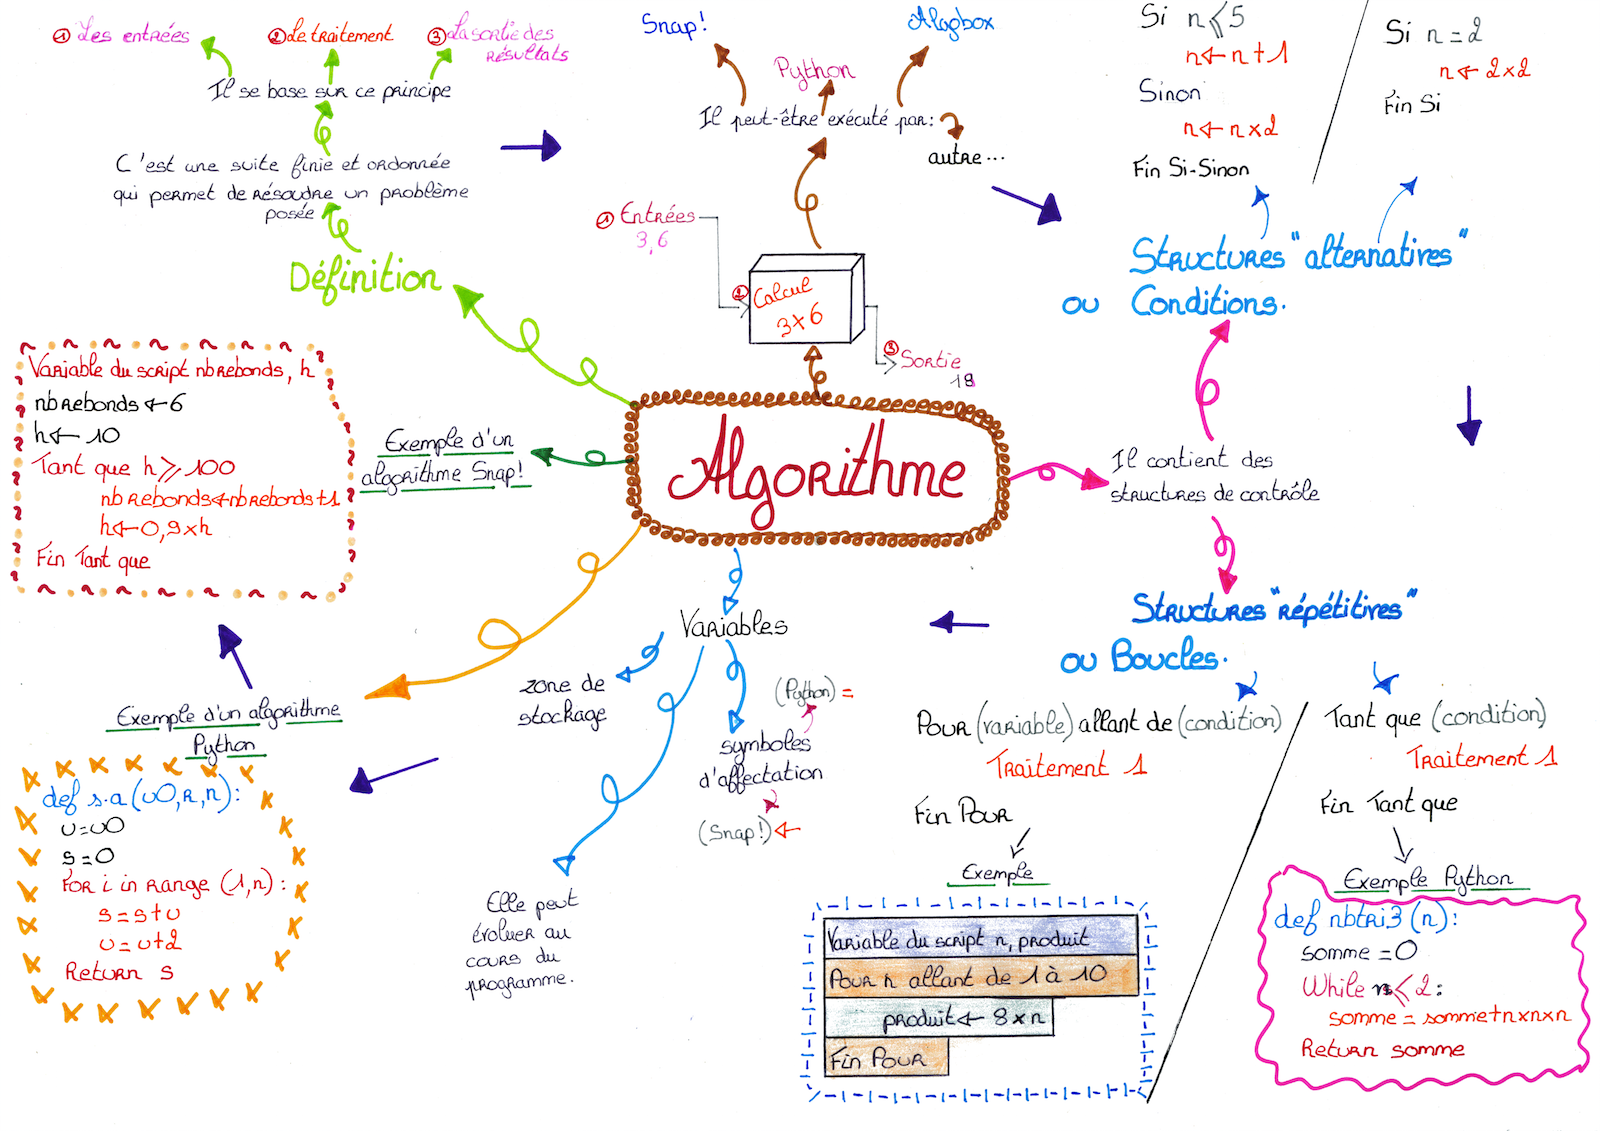 ① Les entrées
② Le traitement
③ La sortie des
résultats
Il se base sur ce principe
C'est une suite finie et ordonnée
qui permet de résoudre un problème
posée
Définition
Snap!
Python
Algobox
Il peut-être exécuté par:
autre...
① Entrées
3,6
② Calcul
3×6
③ Sortie
18
Si n⩽5
n← n+1
Sinon
n← n×2
Fin Si-Sinon
Si n=2
n← 2×2
Fin Si
Structures "alternatives"
ou Conditions.
Algorithme
Il contient des
structures de contrôle
Structures "répétitives"
ou Boucles.
Pour (variable) allant de (condition)
Traitement 1
Fin Pour
Exemple
Variable du script n, produit
Pour n allant de 1 à 10
produit← 8×n
Fin Pour
Tant que (condition)
Traitement 1
Fin Tant que
Exemple Python
def nbtri3(n):
somme=0
While n⩽2:
somme=somme+n×n×n
Return somme
Variables
zone de
stockage
symboles
d'affectation
(Python) =
(Snap!) ←
Elle peut
évoluer au
cours du
programme.
Exemple d'un
algorithme Snap!
Variable du script nbrebonds, h
nbrebonds←6
h← 10
Tant que h⩾100
nbrebonds←nbrebonds+1
h←0,9×h
Fin Tant que
Exemple d'un algorithme
Python
def s.a(u0,r,n):
u=u0
s=0
For i in range (1,n):
s=s+u
u=u+2
Return s